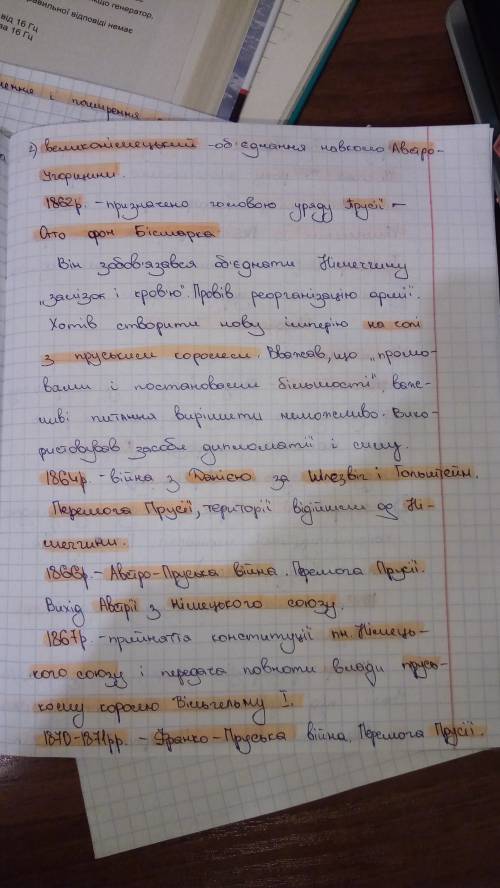 якщо генератор,
правильної відповіді немає
від 16 Гц
за 16 Гц
і поширення
2) великонімецький - об'єднання навколо Австро-
Угорщини.
1862р. - призначено головою уряду Прусії -
Отто фон Бісмарка
Він зобов'язався об'єднати Німеччину
"залізом і кров'ю". Провів реорганізацію армії.
Хотів створити нову імперію на чолі
з пруським королем. Вважав, що "промо-
вами і постановами більшості" важ-
ливі питання вирішити неможливо. Вико-
ристовував засоби дипломатії і силу.
1864р. - війна з Данією за Шлезвіг і Гольштейн.
Перемога Прусії, території відійшли до Ні-
меччини.
1866р. - Австро-Пруська війна. Перемога Прусії.
Вихід Австрії з Німецького союзу.
1867р. - прийняття конституції пн. Німець-
кого союзу і передача повноти влади прусь-
кому королю Вільгельму I.
1870-1871рр. - Франко-Пруська війна. Перемога Прусії.